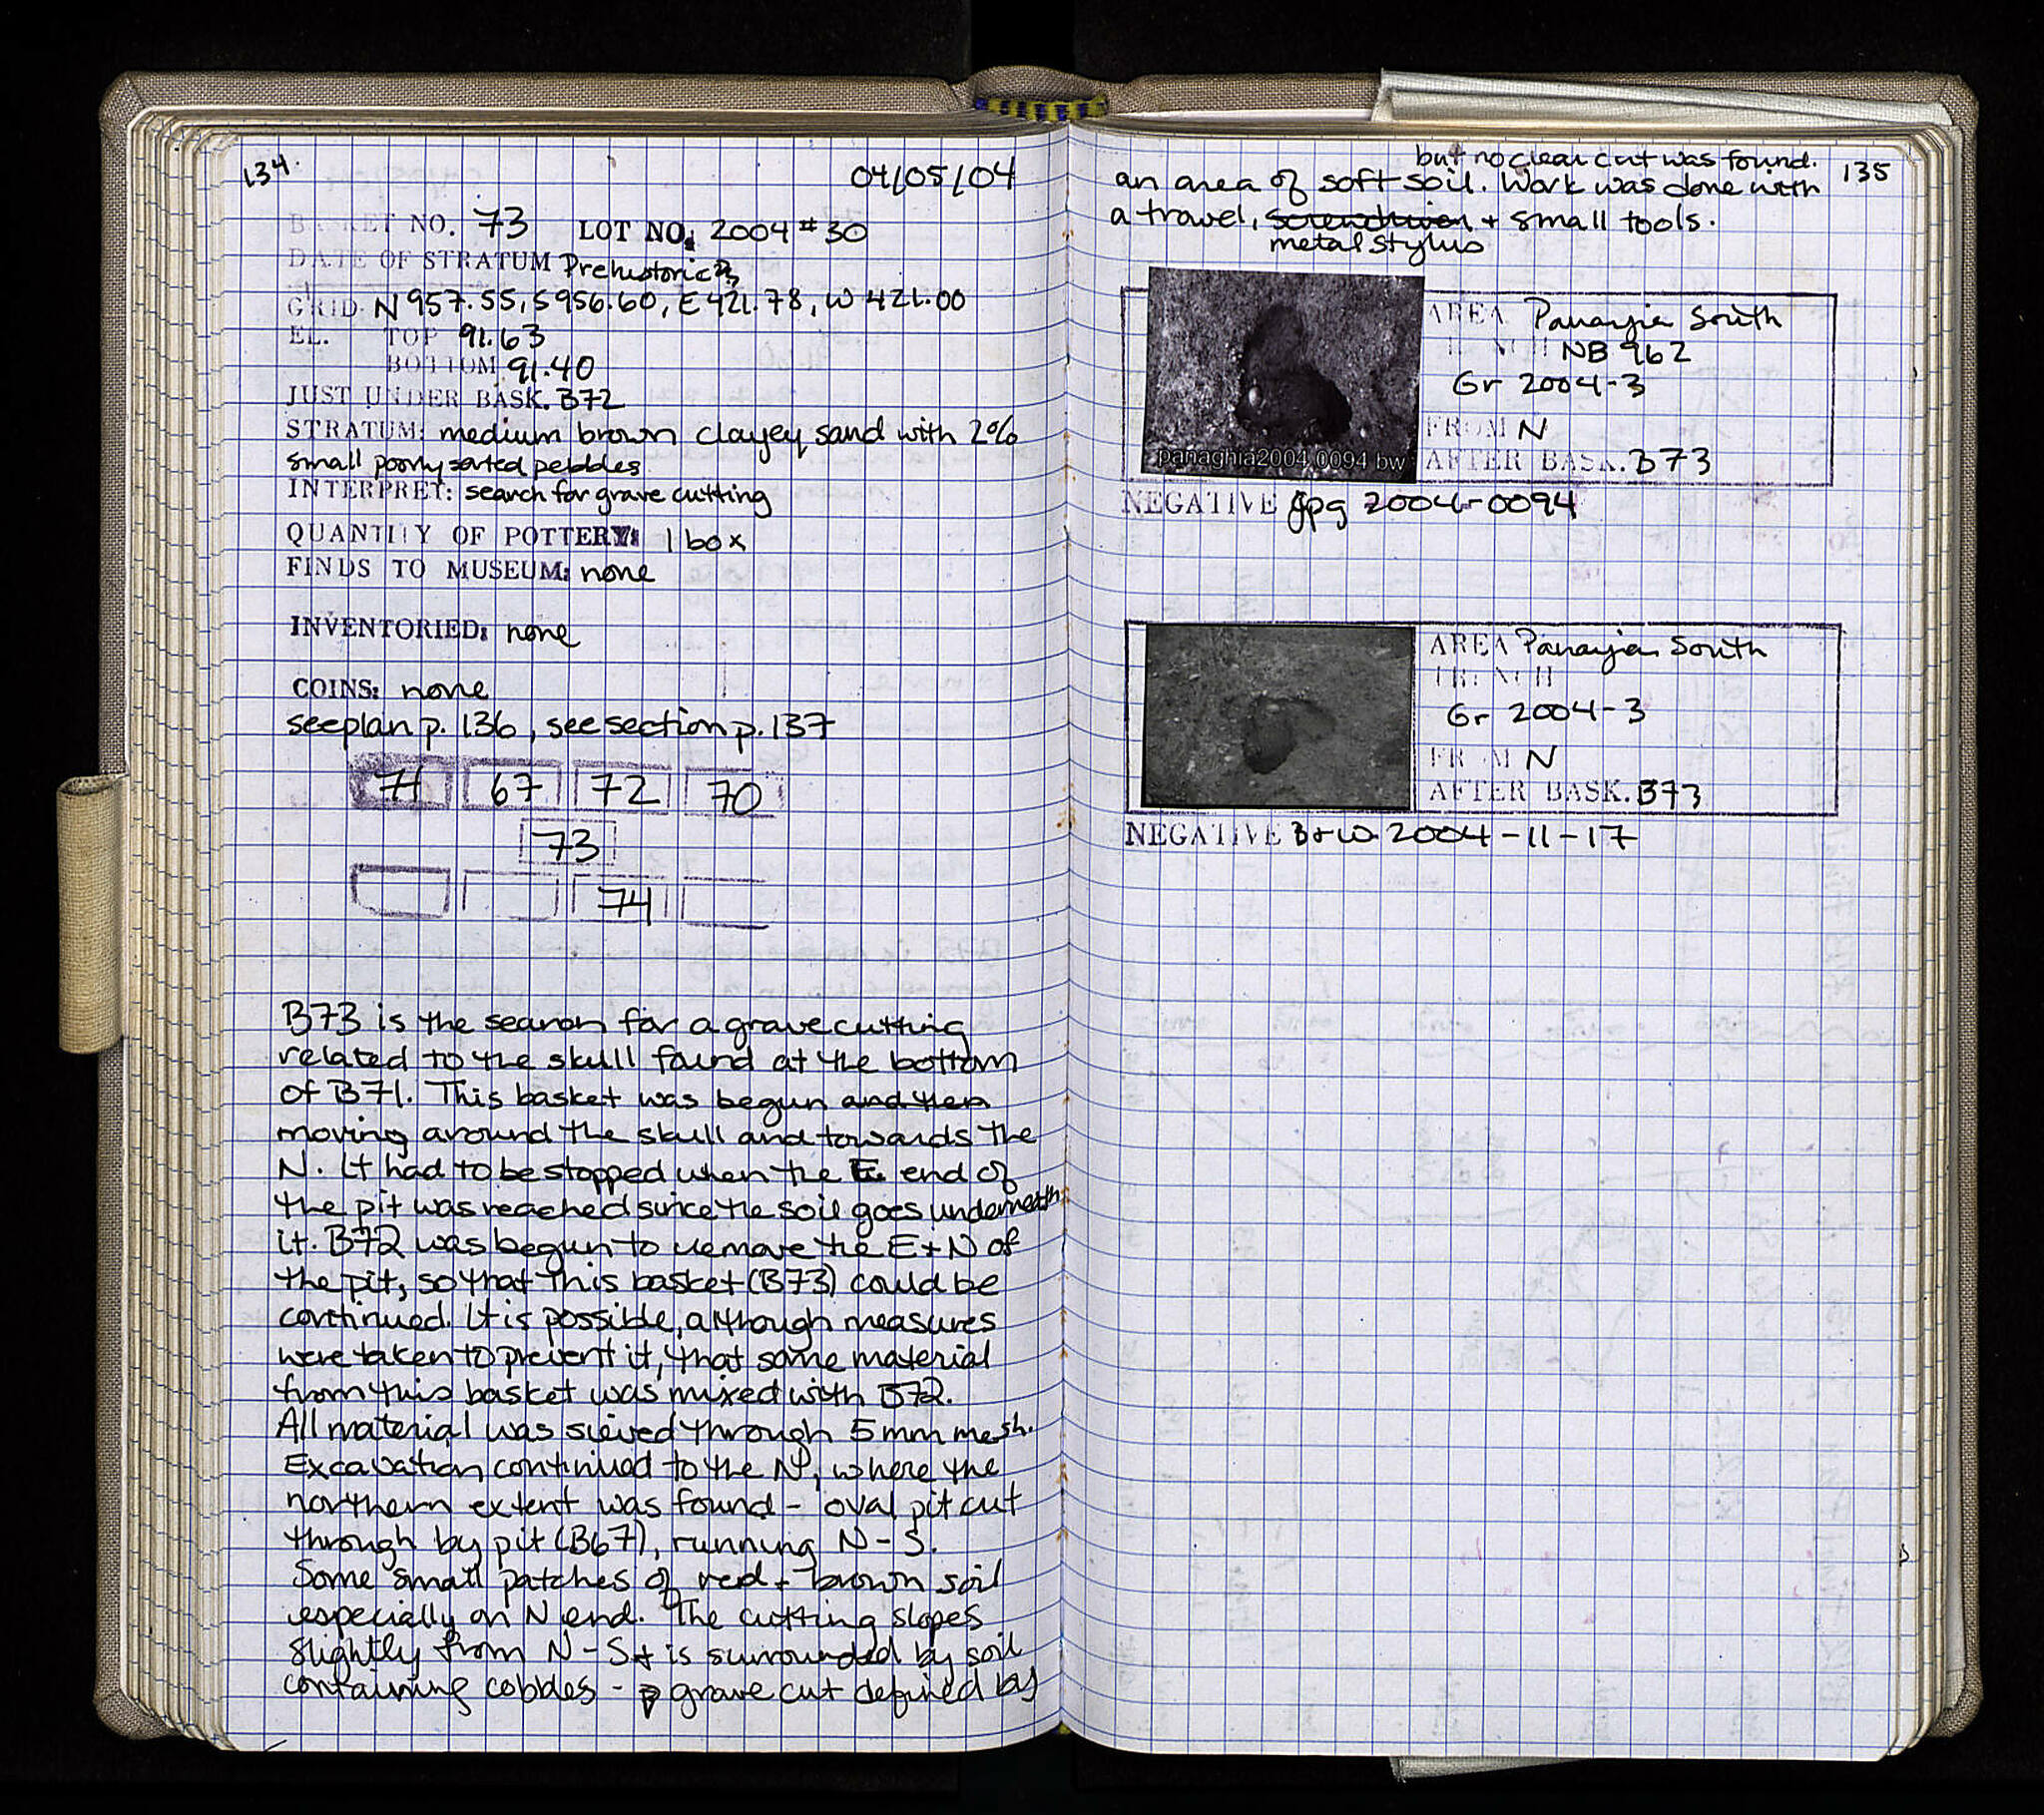 134.
04/05/04
BASKET NO. 73 LOT NO: 2004 #30
DATE OF STRATUM Prehistoric?
GRID N 957.55, S 956.60, E 421.78, W 421.00
EL. TOP 91.63
BOTTOM 91.40
JUST UNDER BASK. B72
STRATUM: medium brown clayey sand with 2%
small poorly sorted pebbles
INTERPRET: search for grave cutting
QUANTITY OF POTTERY: 1 box
FINDS TO MUSEUM: none
INVENTORIED: none
COINS: none
see plan p. 136, see section p. 137
71 67 72 70
73
74
B73 is the search for a grave cutting
related to the skull found at the bottom
of B71. This basket was begun and then
moving around the skull and towards the
N. It had to be stopped when the E end of
the pit was reached since the soil goes underneath
it. B72 was begun to remove the E + N of
the pit, so that this basket (B73) could be
continued. It is possible, although measures
were taken to prevent it, that some material
from this basket was mixed with B72.
All material was sieved through 5mm mesh.
Excavation continued to the N, where the
northern extent was found - oval pit cut
through by pit (B67), running N-S.
Some small patches of red + brown soil
especially on N end. The cutting slopes
slightly from N-S + is surrounded by soil
containing cobbles - grave cut defined by
135
but no clear cut was found.
an area of soft soil. Work was done with
a trowel, screwdriver + small tools.
metal stylus
AREA Panayia South
TRENCH NB 962
Gr 2004-3
FROM N
AFTER BASK. B73
panaghia2004 0094 bw
NEGATIVE jpg 2004-0094
AREA Panayia South
TRENCH
Gr 2004-3
FROM N
AFTER BASK. B73
NEGATIVE B+W 2004-11-17